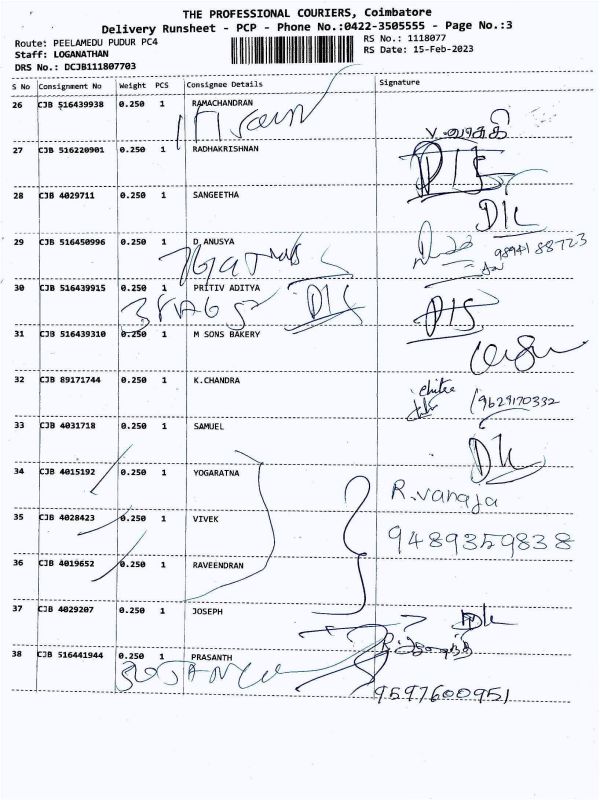 THE PROFESSIONAL COURIERS, Coimbatore
Delivery Runsheet - PCP - Phone No.:0422-3505555 - Page No.:3
Route: PEELAMEDU PUDUR PC4
RS No.: 1118077
Staff: LOGANATHAN
RS Date: 15-Feb-2023
DRS No.: DCJB111807703
S No Consignment No Weight PCS Consignee Details Signature
26 CJB 516439938 0.250 1 RAMACHANDRAN
27 CJB 516220901 0.250 1 RADHAKRISHNAN
28 CJB 4029711 0.250 1 SANGEETHA
29 CJB 516450996 0.250 1 D ANUSYA
9894188723
30 CJB 516439915 0.250 1 PRITIV ADITYA
31 CJB 516439310 0.250 1 M SONS BAKERY
32 CJB 89171744 0.250 1 K.CHANDRA
9629170332
33 CJB 4031718 0.250 1 SAMUEL
34 CJB 4015192 0.250 1 YOGARATNA R.vanaja
35 CJB 4028423 0.250 1 VIVEK 9489359838
36 CJB 4019652 0.250 1 RAVEENDRAN
37 CJB 4029207 0.250 1 JOSEPH
38 CJB 516441944 0.250 1 PRASANTH
9597600951